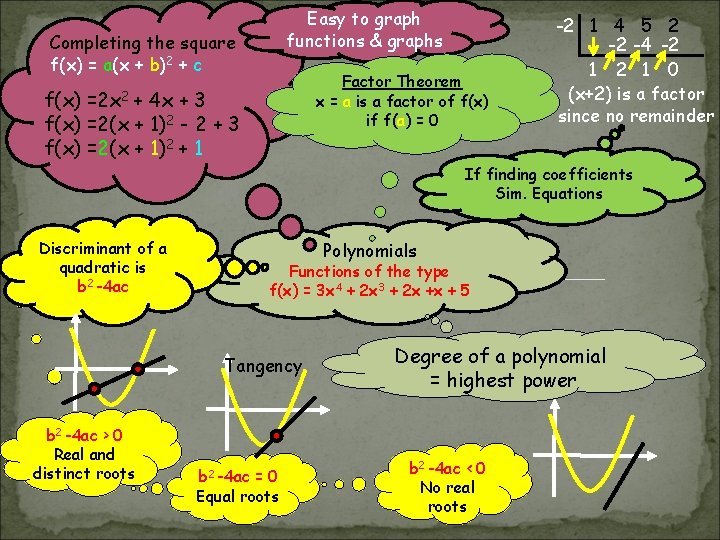 Completing the square
f(x) = a(x + b)² + c
f(x) =2x² + 4x + 3
f(x) =2(x + 1)² - 2 + 3
f(x) =2(x + 1)² + 1
Easy to graph
functions & graphs
Factor Theorem
x = a is a factor of f(x)
if f(a) = 0
-2 1 4 5 2
-2 -4 -2
1 2 1 0
(x+2) is a factor
since no remainder
If finding coefficients
Sim. Equations
Discriminant of a
quadratic is
b² -4ac
Polynomials
Functions of the type
f(x) = 3x⁴ + 2x³ + 2x +x + 5
Tangency
Degree of a polynomial
= highest power
b² -4ac > 0
Real and
distinct roots
b² -4ac = 0
Equal roots
b² -4ac < 0
No real
roots